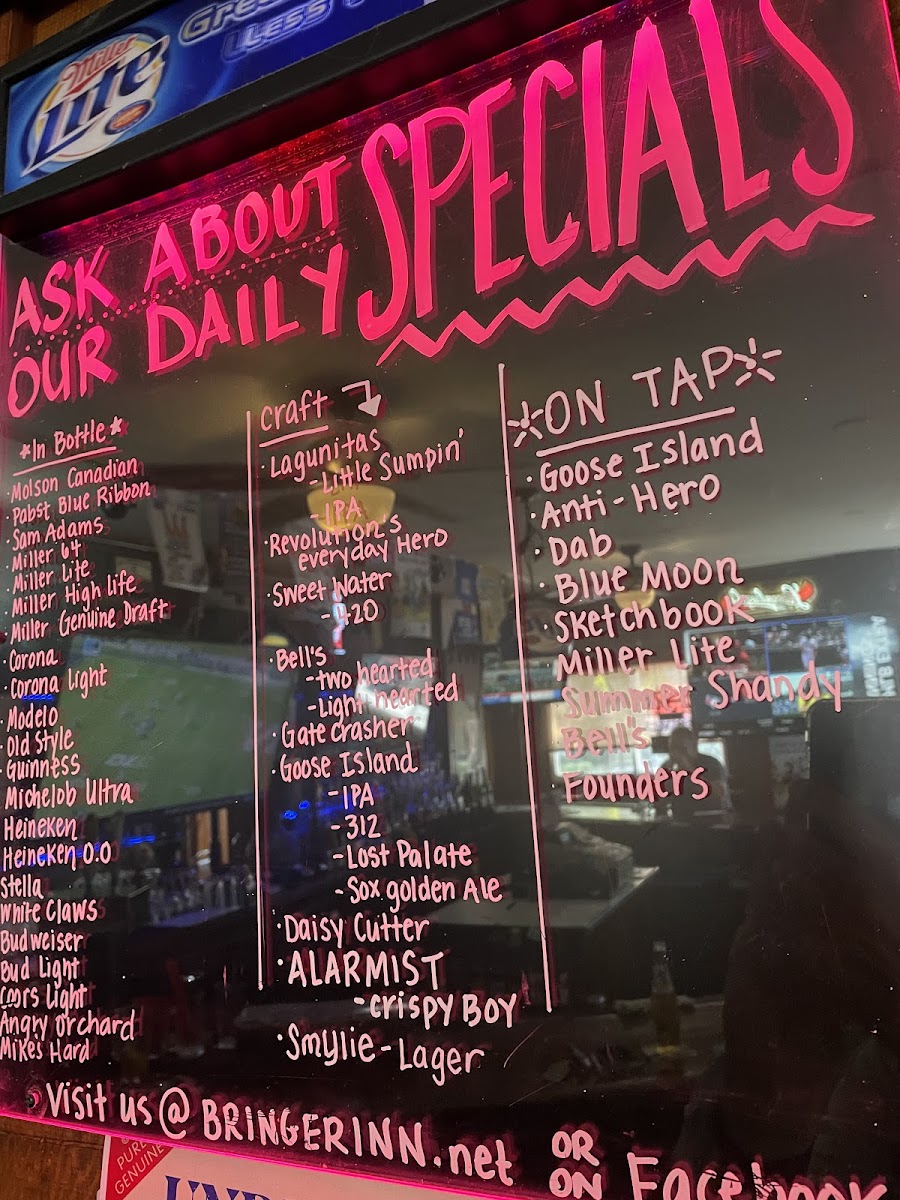 Miller
Lite
ASK ABOUT
OUR DAILY SPECIALS
*In Bottle*
·Molson Canadian
·Pabst Blue Ribbon
·Sam Adams
·Miller 64
Miller Lite
·Miller High life
·Miller Genuine Draft
·Corona
·Corona Light
·Modelo
·Old Style
·Guinness
Michelob Ultra
Heineken
Heineken 0.0
Stella
White Claws
Budweiser
Bud Light
Coors Light
Angry orchard
Mikes Hard
Craft
·Lagunitas
-Little Sumpin'
-IPA
·Revolution's
everyday Hero
·Sweet Water
-420
·Bell's
-two hearted
-Light hearted
·Gate crasher
·Goose Island
-IPA
-312
-Lost Palate
-Sox golden Ale
·Daisy Cutter
·ALARMIST
-crispy Boy
·Smylie-Lager
ON TAP
·Goose Island
·Anti-Hero
·Dab
·Blue Moon
·Sketchbook
·Miller Lite
Summer Shandy
Bell's
·Founders
Visit us @ BRINGERINN.net OR
ON Facebook
PURE
GENUINE